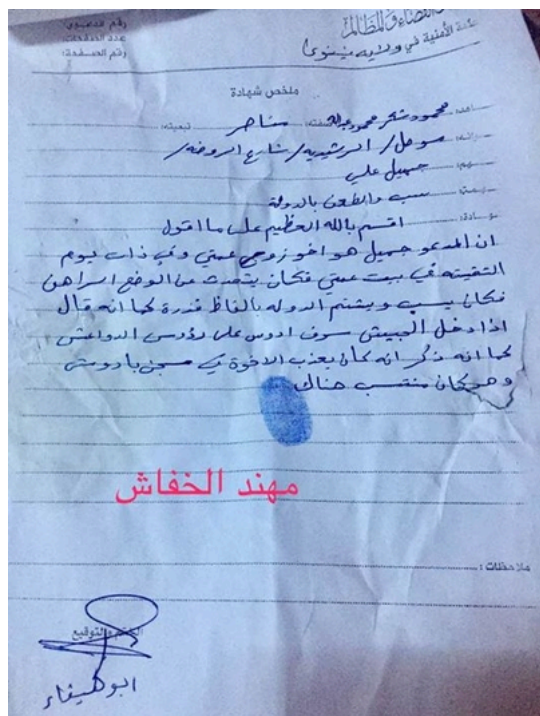 رقم الدعوى:
عدد الصفحات:
رقم الصفحة:
القضاء والمظالم
الأمنية في ولاية نينوى
ملخص شهادة
محمود شكر محمود عبدالله صفته: مناصر تبعيته:
موصل / الرشيدية / شارع الروضة /
جميل علي
سب والطعن بالدولة
اقسم بالله العظيم على ما اقول
ان المدعو جميل هو اخو زوج عمتي وفي ذات يوم
التقيته في بيت عمتي فكان يتحدث عن الوضع الراهن
فكان يسب ويشتم الدولة بالفاظ قذرة كما انه قال
اذا دخل الجيش سوف ادوس على رؤوس الدواعش
كما انه ذكر انه كان يعذب الاخوة في سجن بادوش
وهو كان منتسب هناك
مهند الخفاش
ملاحظات:
الختم والتوقيع
ابو هيفاء